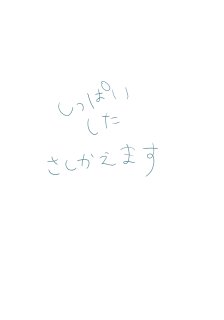 しっぱい
した
さしかえます